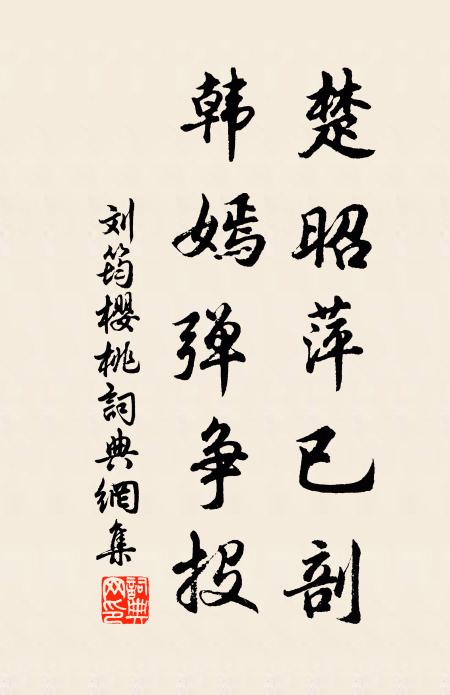 楚昭萍已剖
韩嫣弹争投
刘筠樱桃詞典網集
詞典网印